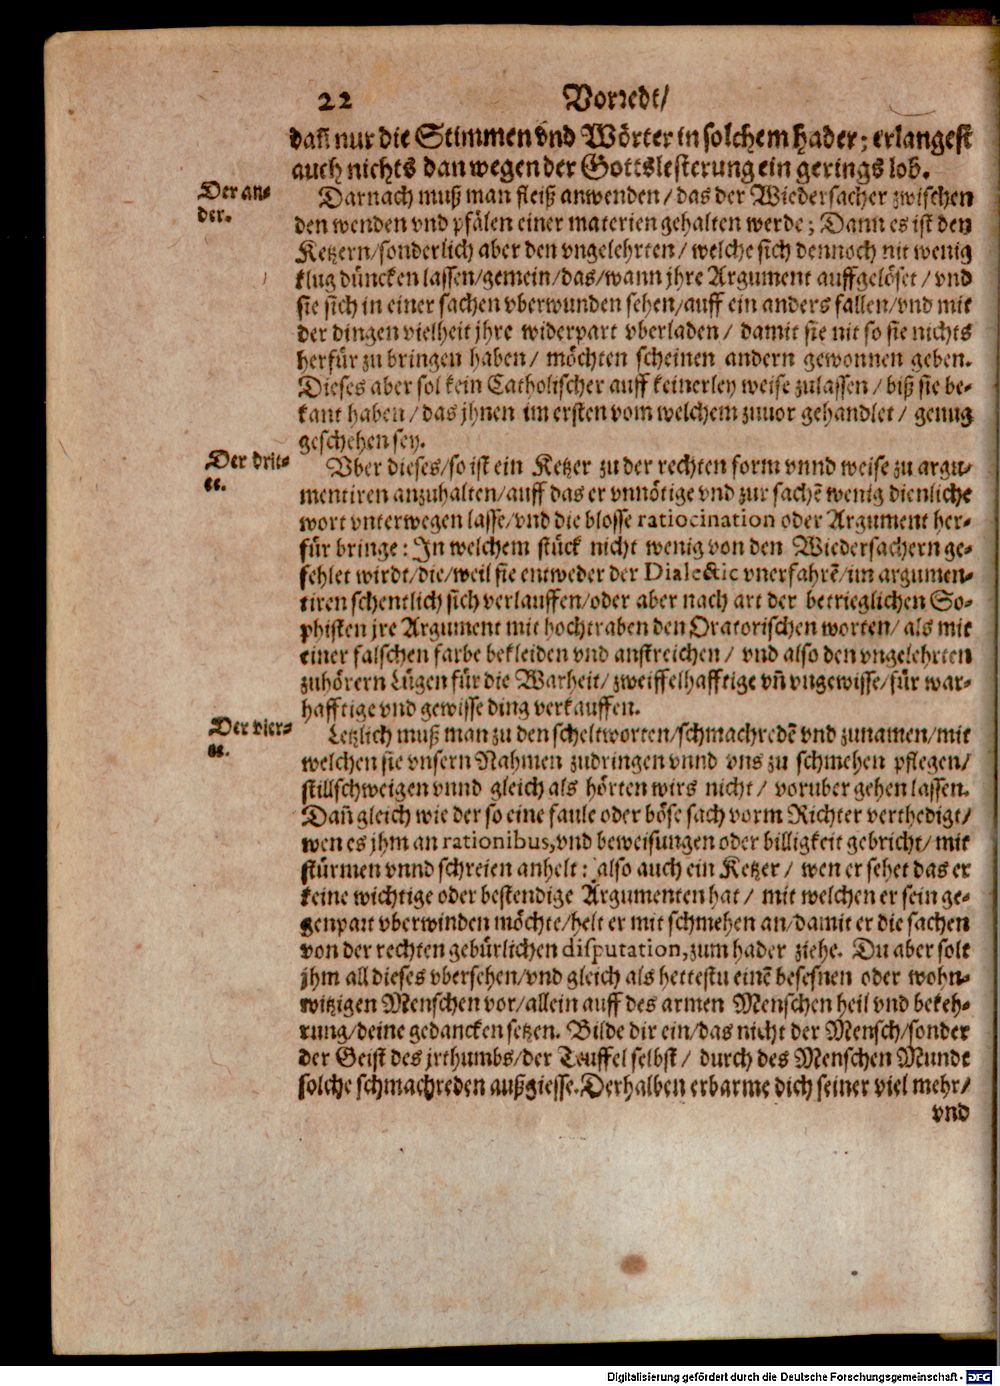 22 Vorredt/
dañ nur die Stimmen vnd Wörter in solchem hader; erlangest
auch nichts dan wegen der Gottslesterung ein gerings lob.
Der an-
der.
Darnach muß man fleiß anwenden/das der Wiedersacher zwischen
den wenden vnd pfälen einer materien gehalten werde; Dann es ist den
Ketzern/sonderlich aber den vngelehrten/welche sich dennoch nit wenig
klug düncken lassen/gemein/das/wann jhre Argument auffgelöset/vnd
sie sich in einer sachen vberwunden sehen/auff ein anders fallen/vnd mit
der dingen vielheit jhre widerpart vberladen/ damit sie nit so sie nichts
herfür zu bringen haben/ möchten scheinen andern gewonnen geben.
Dieses aber sol kein Catholischer auff keinerley weise zulassen/biß sie be-
kant haben/das jhnen im ersten vom welchem zuuor gehandlet/ genug
geschehen sey.
Der drit-
te.
Vber dieses/so ist ein Ketzer zu der rechten form vnnd weise zu argu-
mentiren anzuhalten/auff das er vnnötige vnd zur sachẽ wenig dienliche
wort vnterwegen lasse/vnd die blosse ratiocination oder Argument her-
für bringe: In welchem stück nicht wenig von den Wiedersachern ge-
fehlet wirdt/die/weil sie entweder der Dialectic vnerfahrẽ/im argumen-
tiren schentlich sich verlauffen/oder aber nach art der betrieglichen So-
phisten jre Argument mit hochtraben den Oratorischen worten/als mit
einer falschen farbe bekleiden vnd anstreichen/ vnd also den vngelehrten
zuhörern Lügen für die Warheit/zweiffelhafftige vñ vngewisse/für war-
hafftige vnd gewisse ding verkauffen.
Der vier-
te.
Letzlich muß man zu den scheltworten/schmachredẽ vnd zunamen/mit
welchen sie vnsern Nahmen zudringen vnnd vns zu schmehen pflegen/
stillschweigen vnnd gleich als hörten wirs nicht/ voruber gehen lassen.
Dañ gleich wie der so eine faule oder böse sach vorm Richter verthedigt/
wen es jhm an rationibus,vnd beweisungen oder billigkeit gebricht/mit
stürmen vnnd schreien anhelt: also auch ein Ketzer/ wen er sehet das er
keine wichtige oder bestendige Argumenten hat/ mit welchen er sein ge-
genpart vberwinden möchte/helt er mit schmehen an/damit er die sachen
von der rechten gebürlichen disputation,zum hader ziehe. Du aber solt
jhm all dieses vbersehen/vnd gleich als hettestu einẽ besesnen oder wohn-
witzigen Menschen vor/allein auff des armen Menschen heil vnd bekeh-
rung/deine gedancken setzen. Bilde dir ein/das nicht der Mensch/sonder
der Geist des jrthumbs/der Teuffel selbst/ durch des Menschen Munde
solche schmachreden außgiesse. Derhalben erbarme dich seiner viel mehr/
vnd
Digitalisierung gefördert durch die Deutsche Forschungsgemeinschaft - DFG